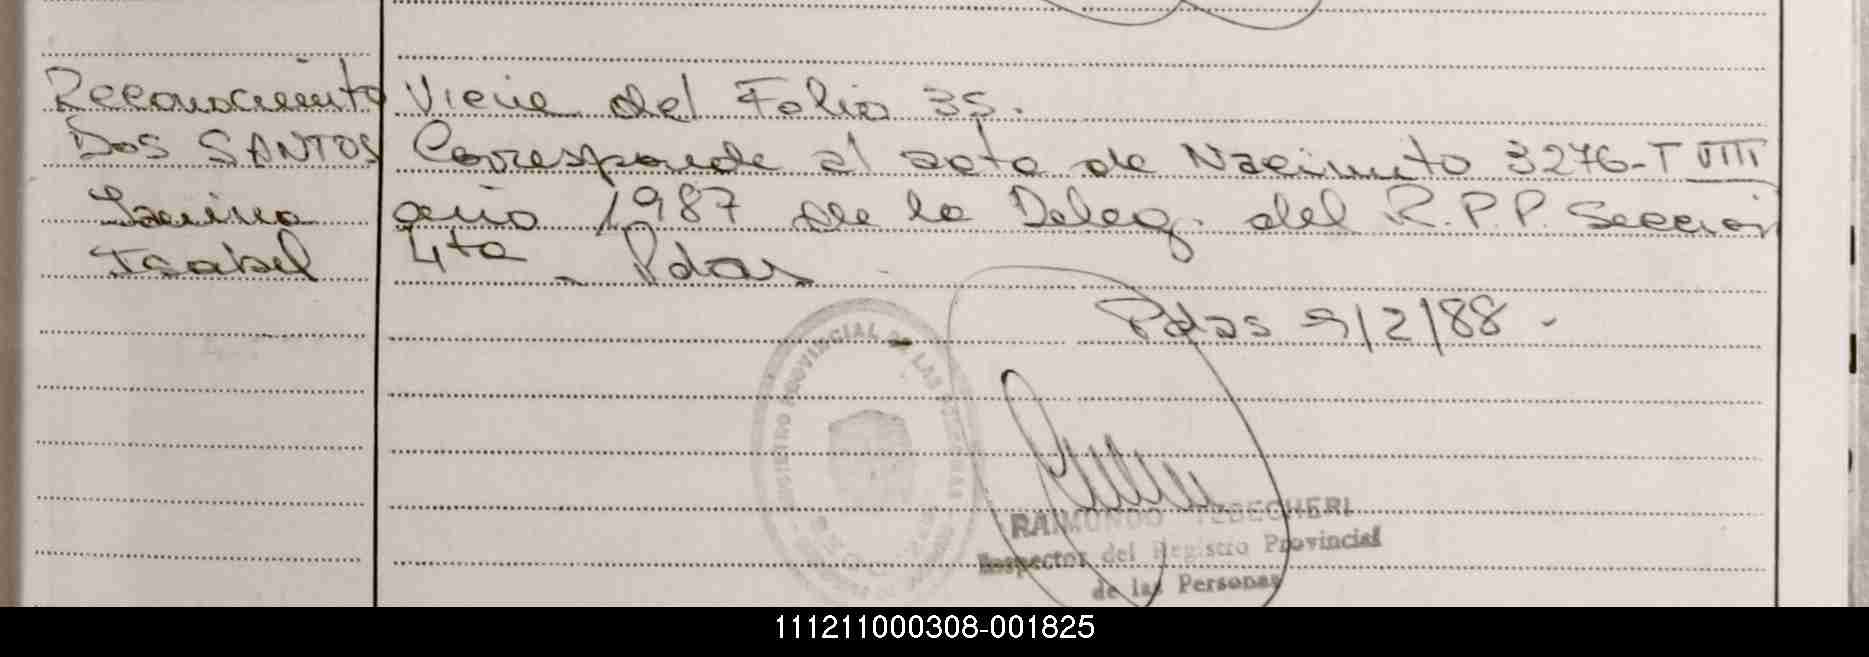 Reconocimiento
Dos SANTOS
Isabel
Viene del Folio 35.
Corresponde al acta de Nacimiento 3276-T VIII
año 1987 de la Deleg. del R.P.P. Sección
4ta - Pdas
Pdas 9/2/88.
REGISTRO PROVINCIAL DE LAS PERSONAS
RAIMUNDO
Inspector del Registro Provincial
de las Personas
111211000308-001825